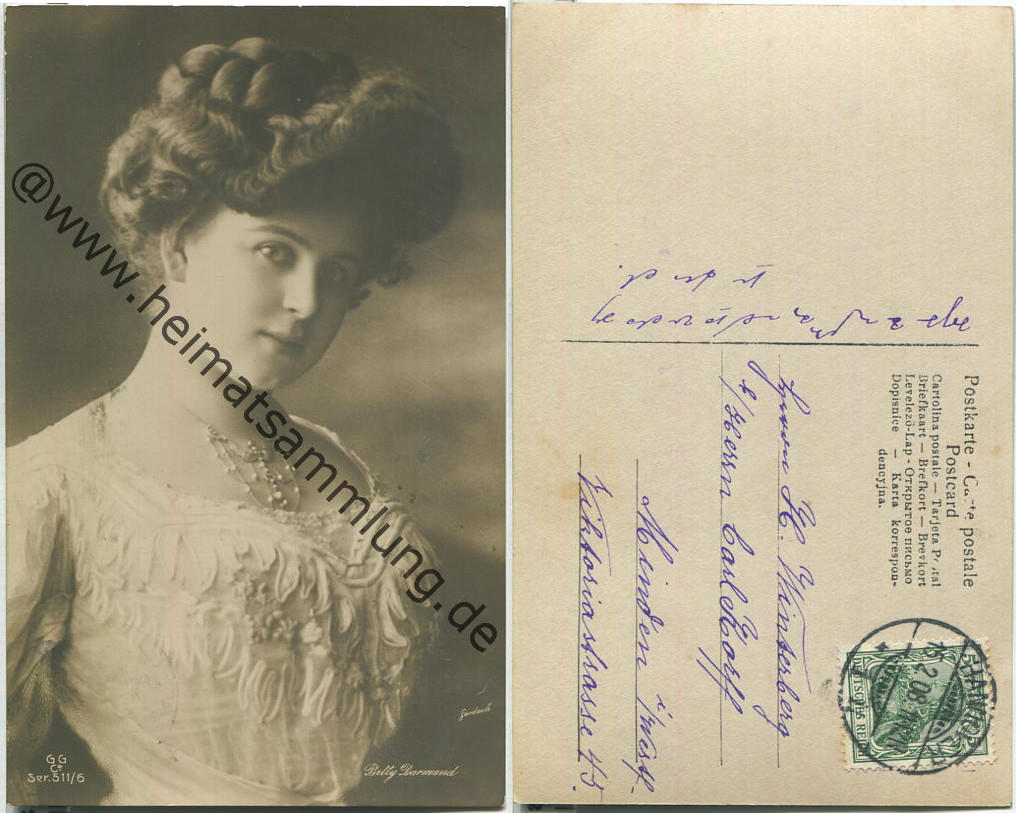 @www.heimatsammlung.de
Gerlach
GG
Co
Ser. 511/6
Betty Darmand
Postkarte - Carte postale
Postcard
Cartolina postale — Tarjeta Postal
Briefkaart — Brefkort — Brevkort
Levelező-Lap - Открытое письмо
Dopisnice — Karta korrespon-
dencyjna.
Herrn H. Winterberg
b/Herrn Carl Korff
Minden i/Westf.
Viktoriastrasse 45.
DEUTSCHES REICH
HANNOVER